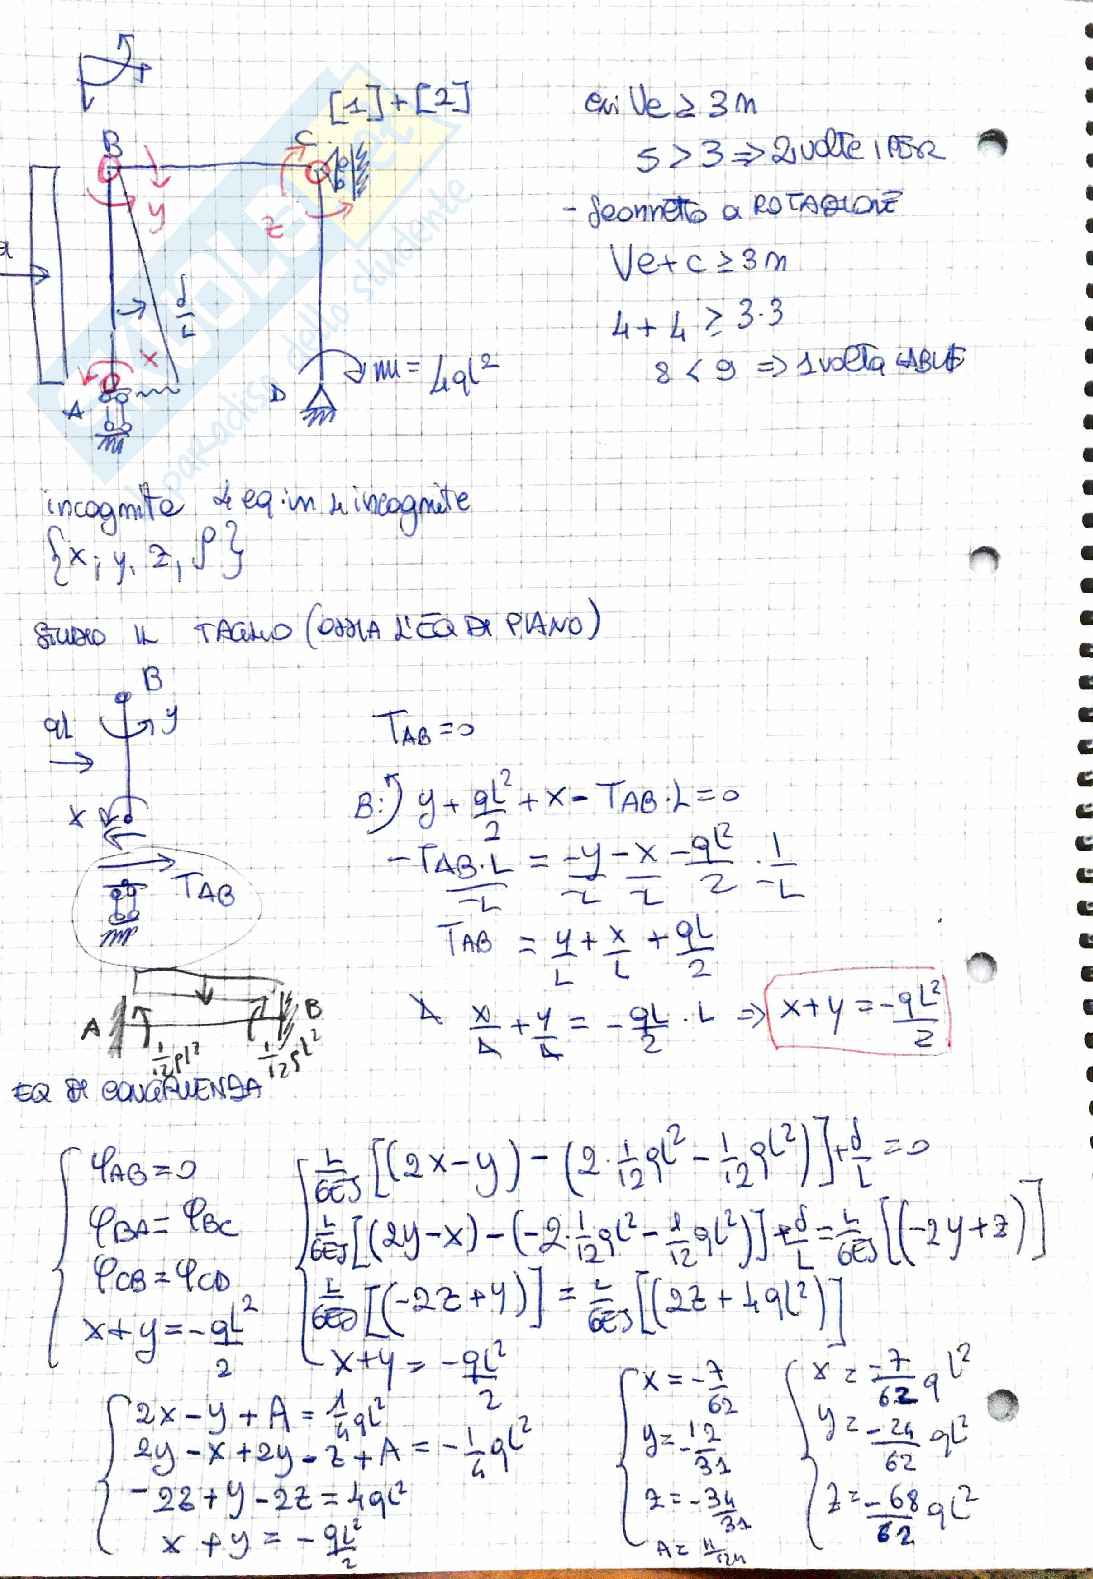 [1]+[2]
B
C
y
z
x
d/L
A
D
m = 4qL²
cui Ve ≥ 3n
5 > 3 ⇒ 2 volte IPER
- sconnetto a ROTAZIONE
Ve + c ≥ 3n
4 + 4 ≥ 3·3
8 < 9 ⇒ 1 volta LABILE
incognite 4 eq. in 4 incognite
{x, y, z, ρ}
STUDIO IL TAGLIO (OSSIA L'EQ DI PIANO)
B
qL
y
x
T_AB
T_AB = 0
B:) y + qL²/2 + x - T_AB·L = 0
-T_AB·L/-L = -y/-L - x/-L - qL²/2 · 1/-L
T_AB = y/L + x/L + qL/2
x/L + y/L = -qL/2 · L ⇒ x + y = -qL²/2
A
B
1/12 ql²
1/12 ql²
EQ DI CONGRUENZA
φ_AB = 0
φ_BA = φ_BC
φ_CB = φ_CD
x + y = -qL²/2
L/6EJ [(2x - y) - (2·1/12 qL² - 1/12 qL²)] + d/L = 0
L/6EJ [(2y - x) - (-2·1/12 qL² - 1/12 qL²)] + d/L = L/6EJ [(-2y + z)]
L/6EJ [(-2z + y)] = L/6EJ [(2z + 4qL²)]
x + y = -qL²/2
2x - y + A = 1/4 qL²
2y - x + 2y - z + A = -1/4 qL²
-2z + y - 2z = 4qL²
x + y = -qL²/2
x = -7/62
y = -12/31
z = -34/31
x = -7/62 qL²
y = -24/62 qL²
z = -68/62 qL²